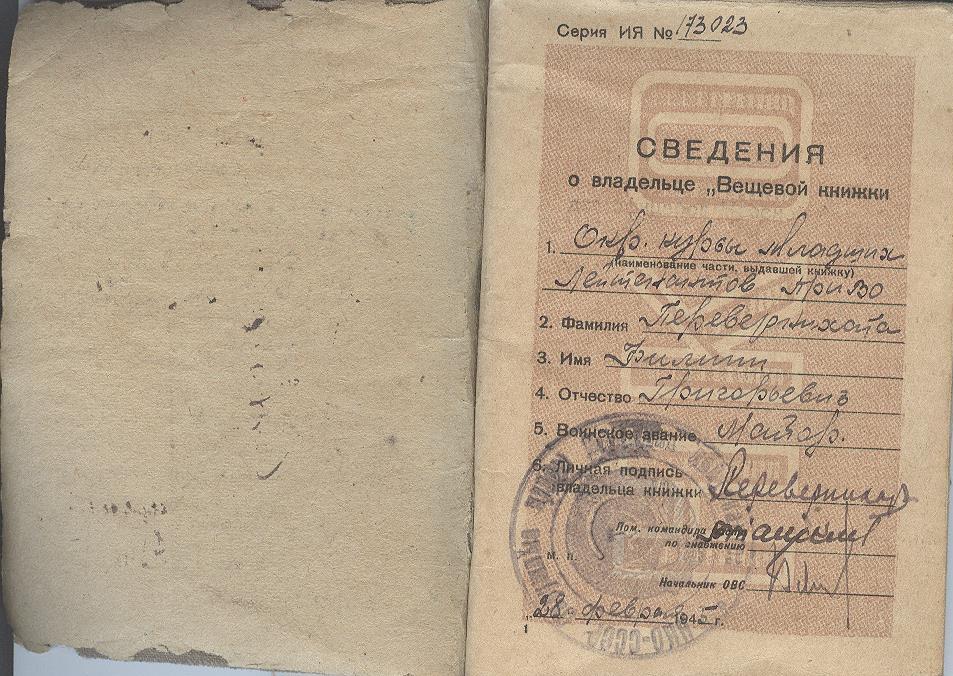 Серия ИЯ № 173023
СВЕДЕНИЯ
о владельце „Вещевой книжки
1. Окр. курсы младших
(наименование части, выдавшей книжку)
Лейтенантов ПриВО
2. Фамилия
3. Имя Филипп
4. Отчество Григорьевич
5. Воинское звание Майор.
6. Личная подпись
владельца книжки
Пом. командира
по снабжению
м. п.
Начальник ОВС
„28“ февраля 1945 г.
1
НКО-СССР